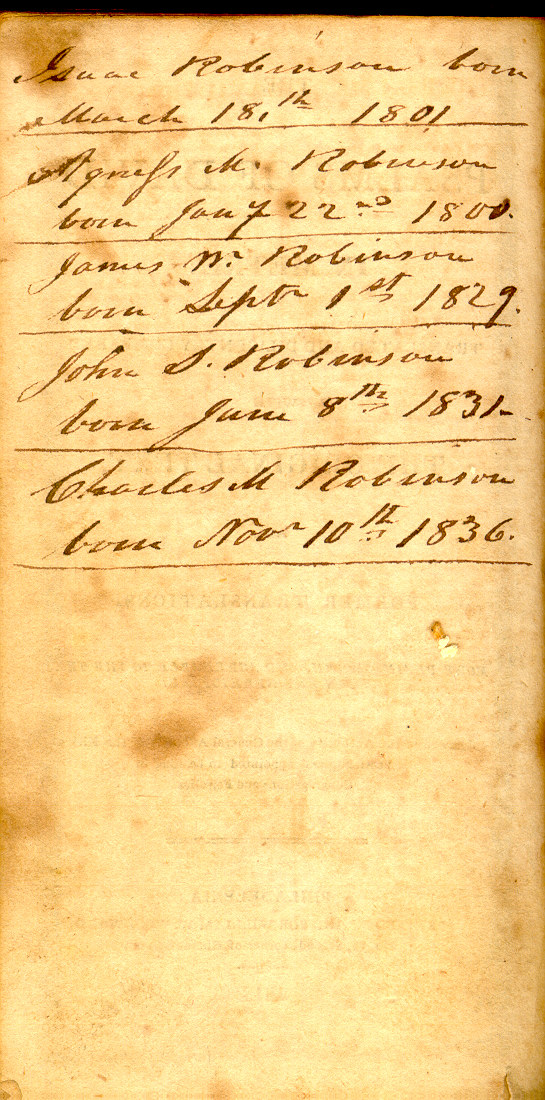 Isaac Robinson born
March 18,th 1801
Agness M. Robinson
born Jany 22nd 1800.
James Wm Robinson
born Septr 1st 1829.
John S. Robinson
born June 8th 1831-
Charles M Robinson
born Novr 10th 1836.